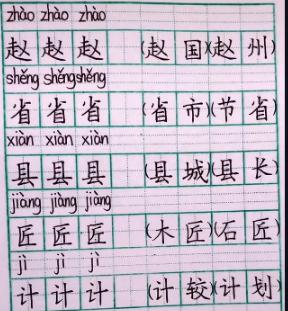 zhào zhào zhào
赵 赵 赵 (赵 国)(赵 州)
shěng shěng shěng
省 省 省 (省 市)(节 省)
xiàn xiàn xiàn
县 县 县 (县 城)(县 长)
jiàng jiàng jiàng
匠 匠 匠 (木 匠)(石 匠)
jì jì jì
计 计 计 (计 较)(计 划)